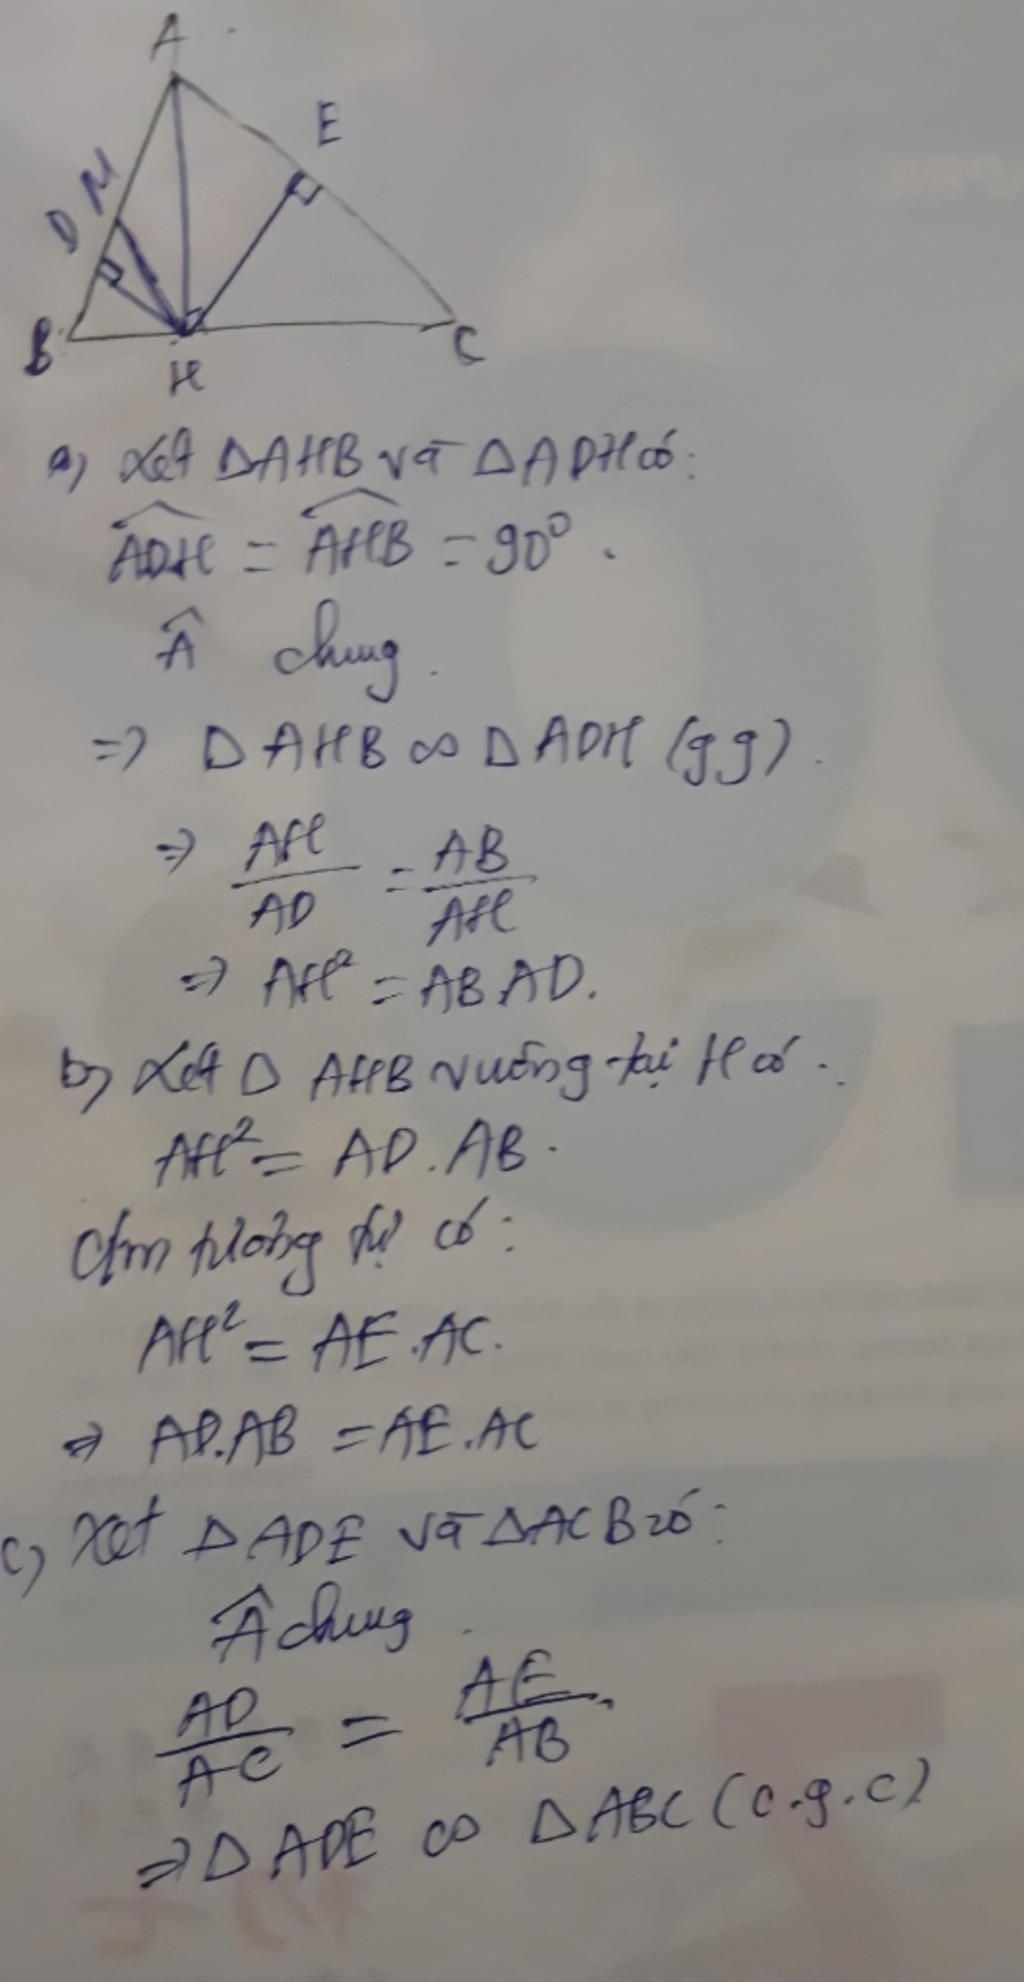 A
E
M
D
B
H
C
a) Xét ΔAHB và ΔADH có:
ADH = AHB = 90°.
Â chung.
=> ΔAHB ∽ ΔADH (gg).
=> AH/AD = AB/AH
=> AH² = AB.AD.
b) Xét Δ AHB vuông tại H có:
AH² = AD.AB.
Cm tương tự có:
AH² = AE.AC.
=> AD.AB = AE.AC
c) Xét ΔADE và ΔACB có:
Â chung.
AD/AC = AE/AB.
=> ΔADE ∽ ΔABC (c.g.c)